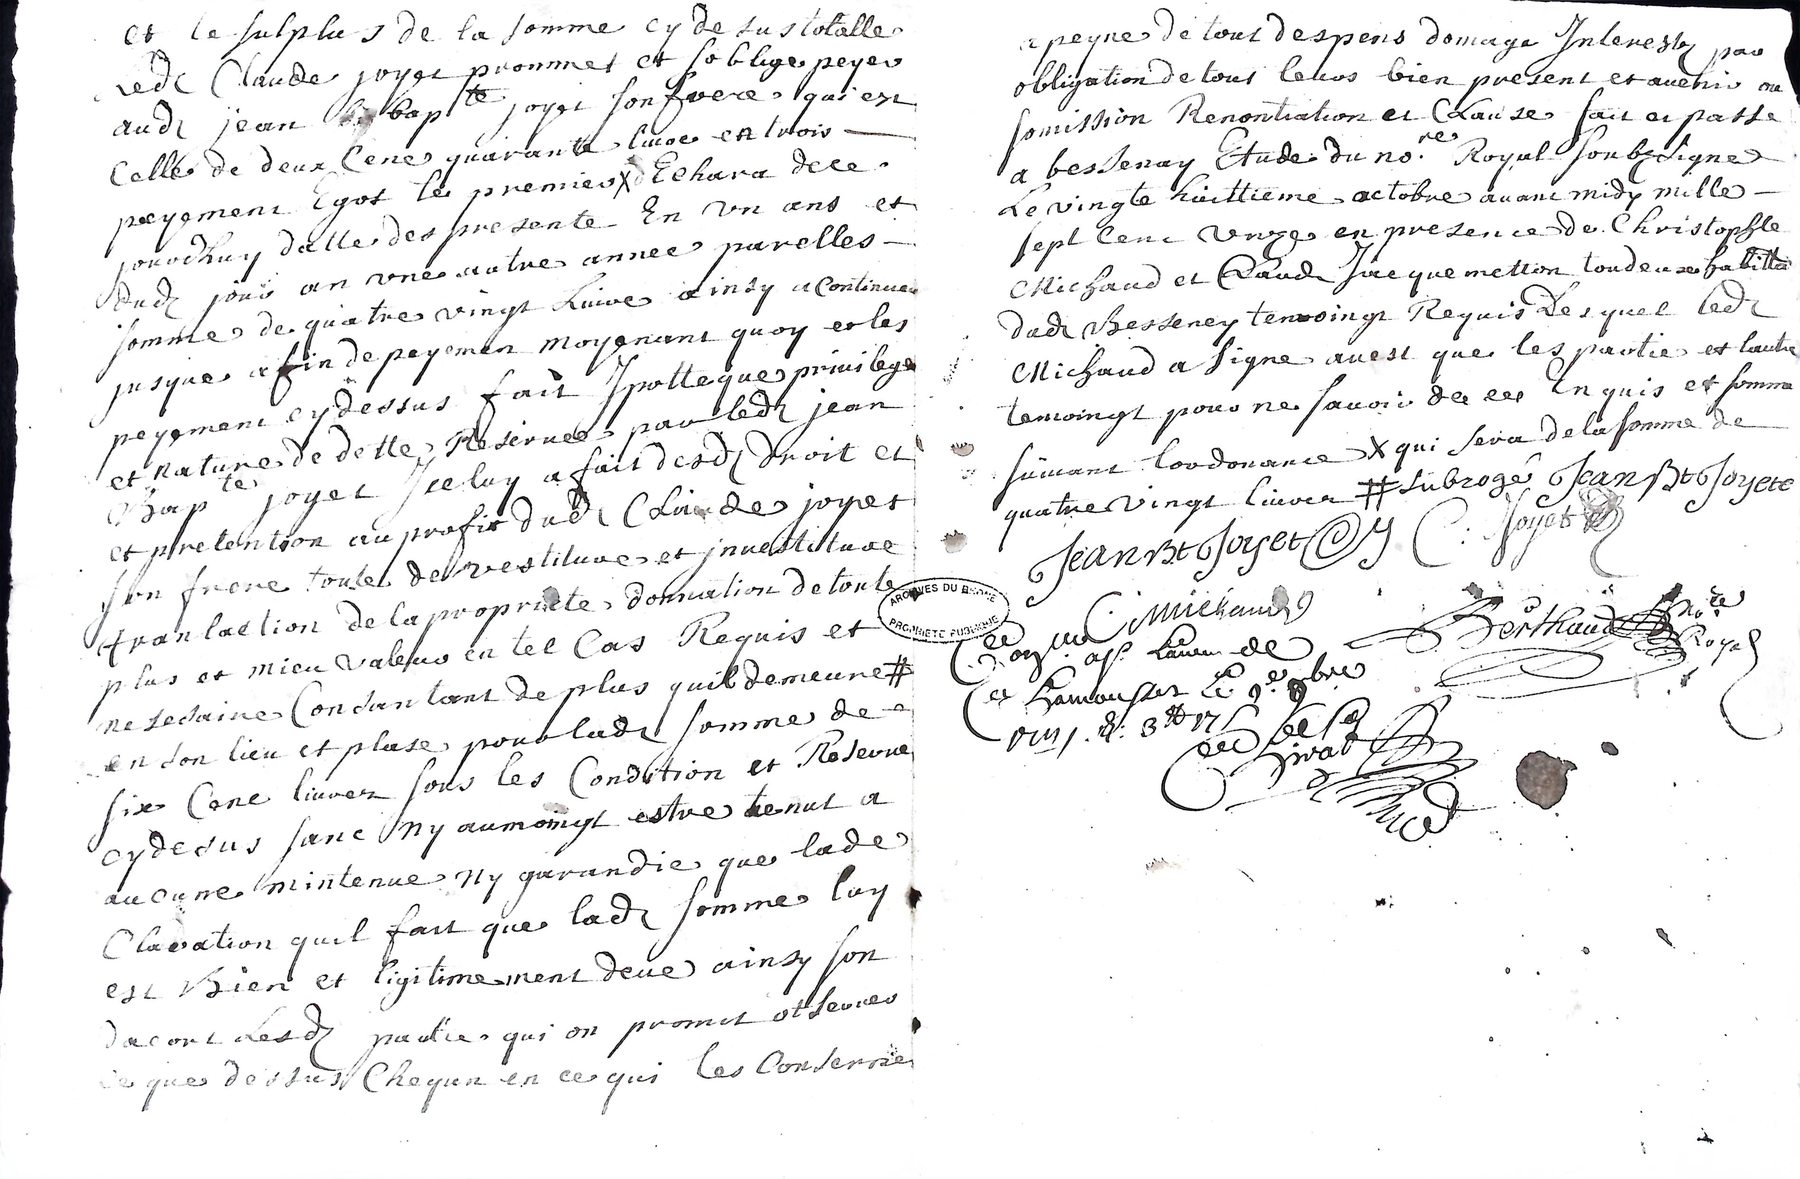 et le sulplus de la somme cy desus totalle
ledt Claude joyet prommet et soblige peyer
audt jean bapte joyet son frere qui est
Celle de deux Cene quarante livre en trois
peyement Egot le premier X Echara dece
jourdhuy datte des presente En un ans et
dudt jour an une autre annee parelles
somme de quatre vingt Livre ainsy a Continuer
jusque a fin de peyemen moyenant quoy et les
peyement cy dessus fait Ipotteque privilege
et nature de dette Reservee par ledt jean
Bapte joyet Iceluy a fait desdt droit et
et pretention au profit dudt Claude joyet
son frere toute devestiture et jnvestiture
translaction de la propriete donnation de toute
plus et mieu valeur en tel Cas Requis et
nesesaire Consantant de plus quil demeure #
en son lieu et plase pour ladt somme de
six Cene livres sous les Condition et Reserve
cy desus sanc ny aumoingt estre tenut a
aucune mintenue ny garandie que lade
Claration quil fait que ladt somme luy
est Bien et ligitimement deue ainsy son
dacort Lesdt partie qui on promit otserver
ce que dessus Chequn en ce qui les Conserne
a peyne de tout despens domage Interestz par
obligation de tout leurs bien present et avenir
somission Renontiation et Clause fait et passe
a bessenay Etude du nore Royal soubzsigne
Le vingte huittieme octobre avant midy mille
sept Cenc unze en presence de Christophle
Michaud et Claude Jacquemetton toudeux habitta
dudt Besseney temoingt Requis Desquel ledt
Michaud a signe avest que les partie et lautre
temoingt pour ne savoir de ce Enquis et somma
suivant lordonance X qui sera de la somme de
quatre vingt livres # subrogé Jean Bt Joyete
Jean Bt Joyet C Joyet
ARCHIVES DU RHONE
PROPRIETE PUBLIQUE
C Michaud
Berthaud nore Royal